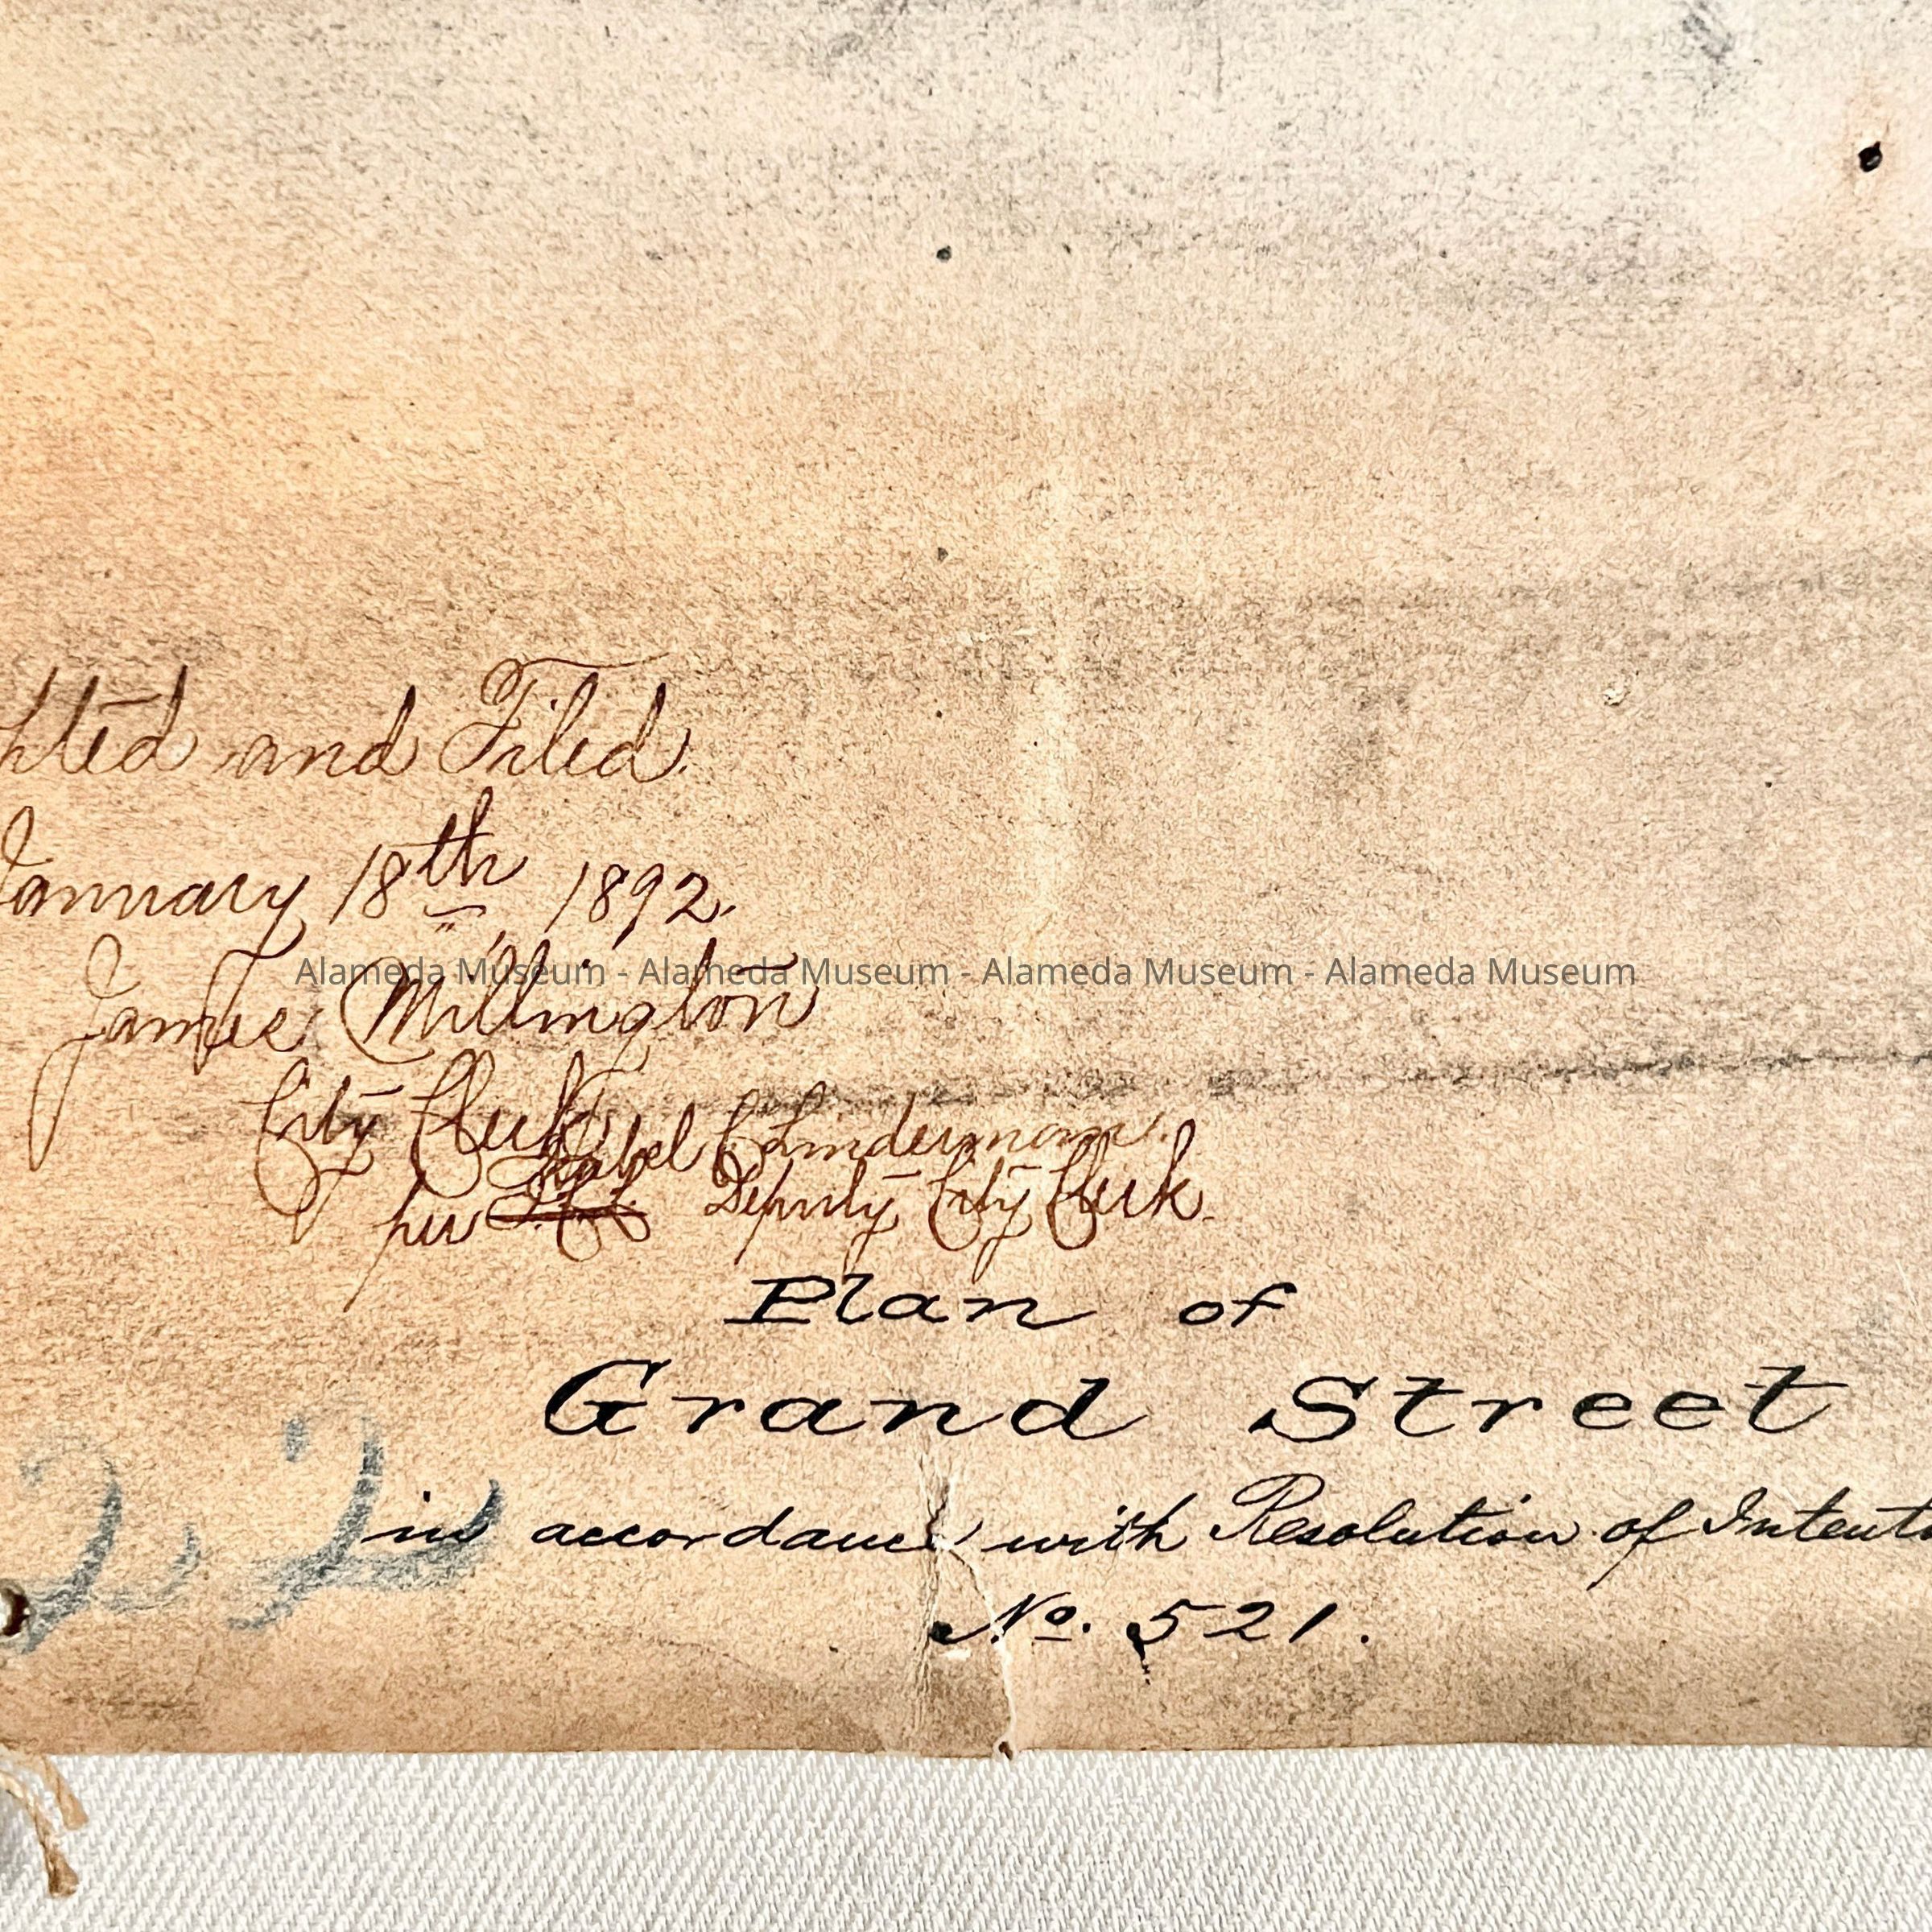 and Filed.
January 18th 1892.
Alameda Museum - Alameda Museum - Alameda Museum - Alameda Museum
James Millington
City Clerk
Isabel C. Linderman.
per Deputy City Clerk.
Plan of
Grand Street
22
in accordance with Resolution of Intent
No. 521.